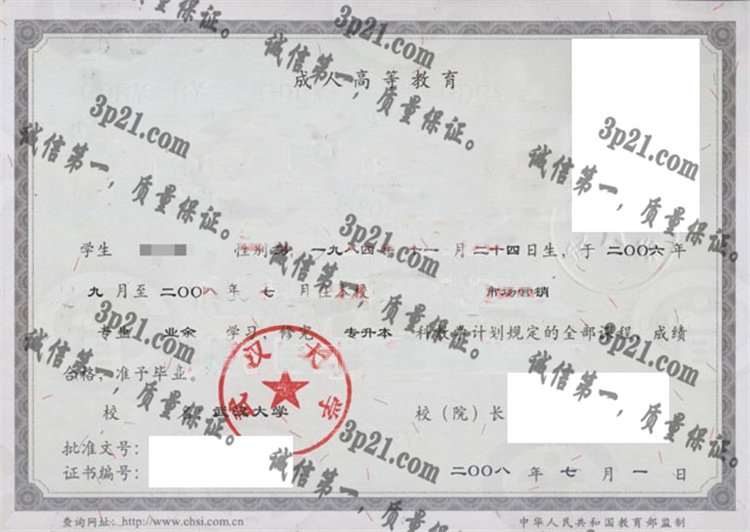 成人高等教育
学生 性别 一九八四年十一月二十四日生，于二〇〇六年
九月至二〇〇八年七月在本校 市场营销
专业 业余 学习，修完 专升本 科教学计划规定的全部课程，成绩
合格，准予毕业。
校 名 武汉大学 校（院）长
批准文号：
证书编号： 二〇〇八年七月一日
查询网址：http://www.chsi.com.cn 中华人民共和国教育部监制
武汉大学
3p21.com
诚信第一，质量保证。
3p21.com
诚信第一，质量保证。
3p21.com
诚信第一，质量保证。
3p21.com
诚信第一，质量保证。
3p21.com
诚信第一，质量保证。
3p21.com
诚信第一，质量保证。
3p21.com
诚信第一，质量保证。
3p21.com
诚信第一，质量保证。